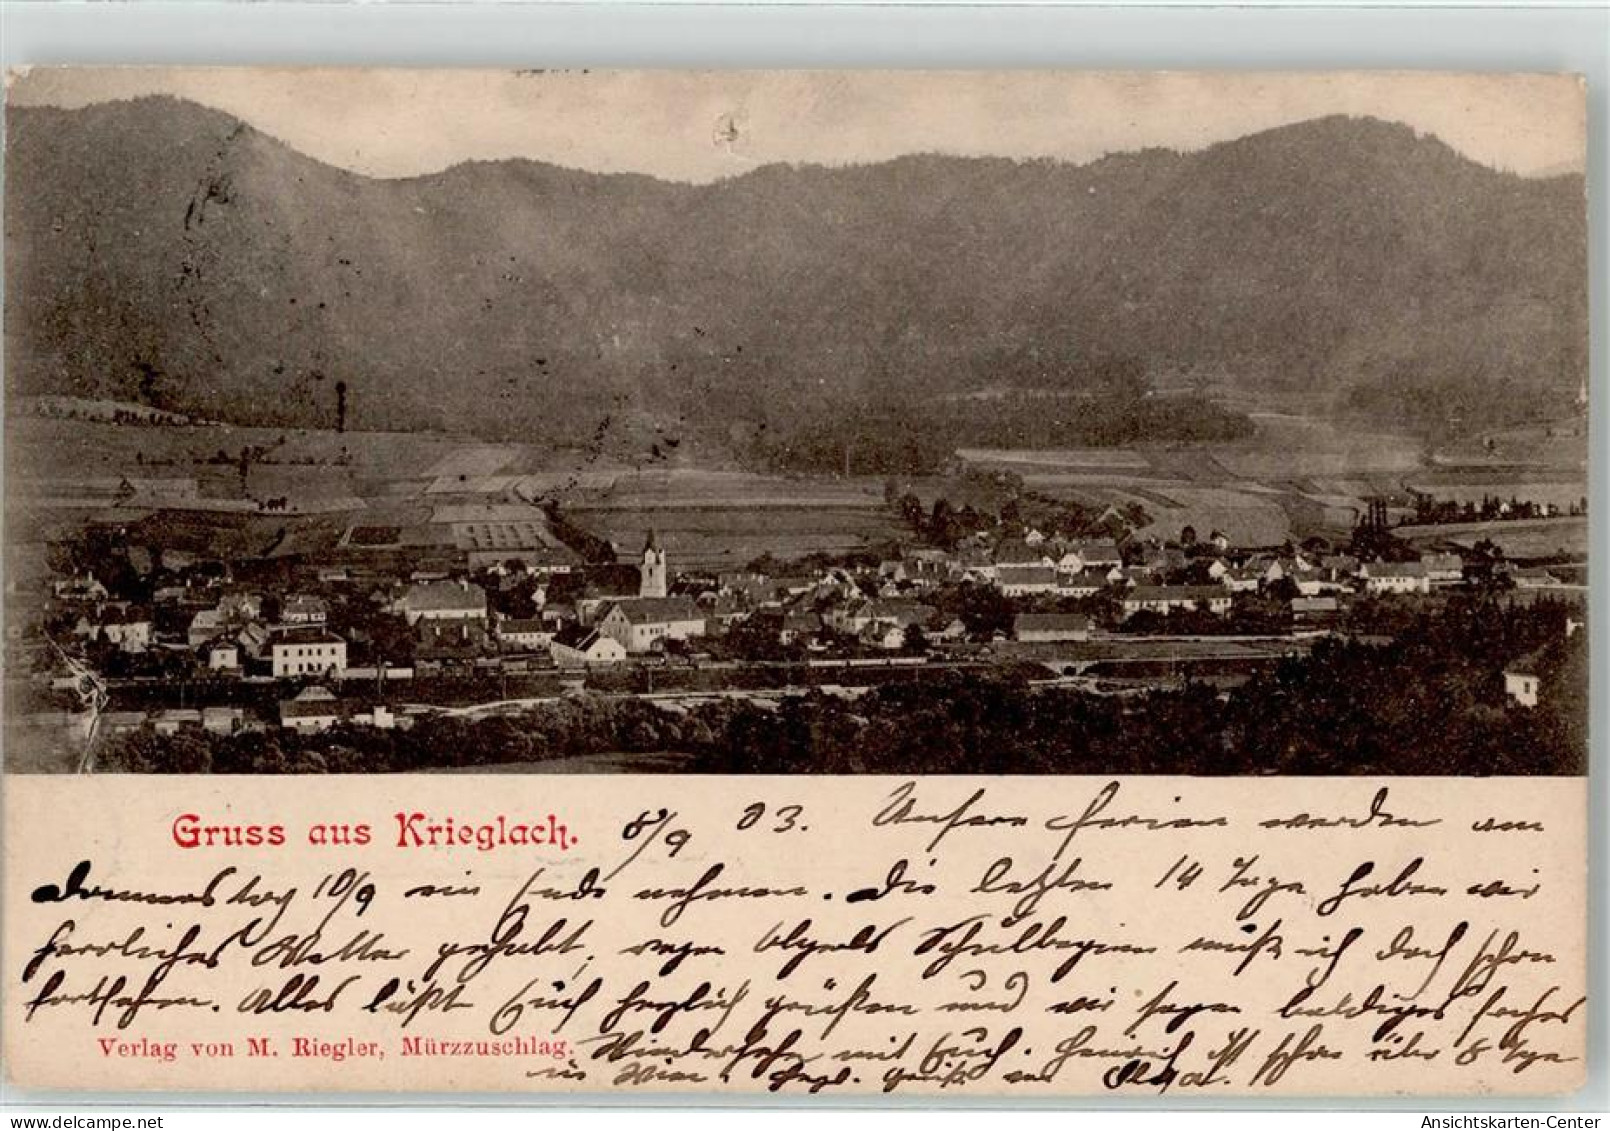 Gruss aus Krieglach. 8/9 03. Unsere Ferien werden am
Donnerstag 10/9 ein Ende nehmen. Die letzten 14 Tage haben wir
herrliches Wetter gehabt, wegen Schulbeginn muß ich doch schon
fortfahren. Alles läßt Euch herzlich grüßen und wir hoffen baldiges
Verlag von M. Riegler, Mürzzuschlag. Wiedersehn mit Euch. Heinrich ist schon über 8 Tage
in Wien. Herzl. Grüße von Olga.
Ansichtskarten-Center